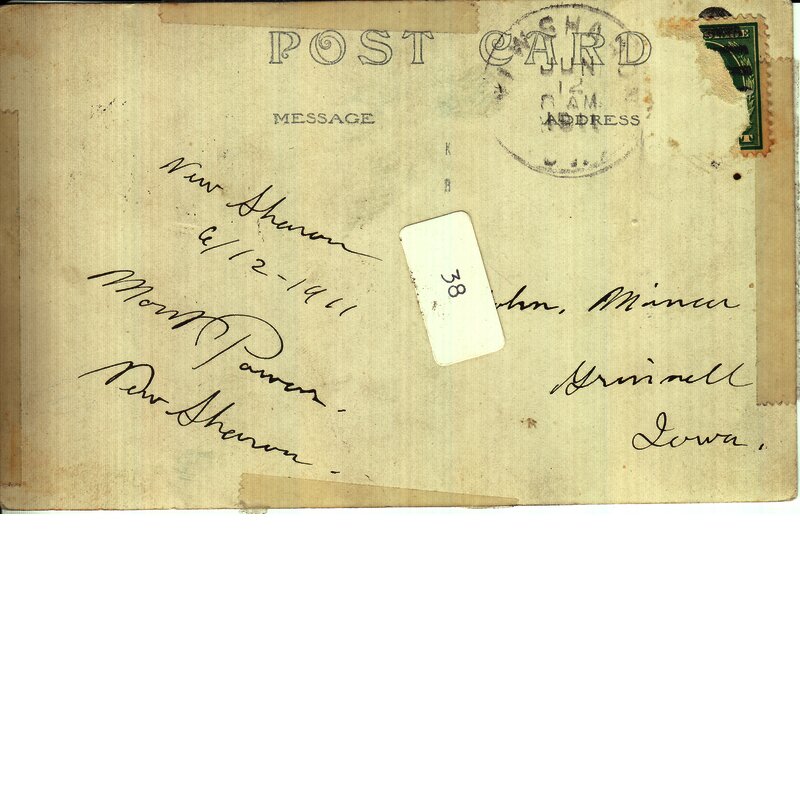 POST CARD
MESSAGE
ADDRESS
JUN
12
AM
New Sharon
6/12-1911
Powers.
New Sharon.
38
John, Minear
Grinnell
Iowa.